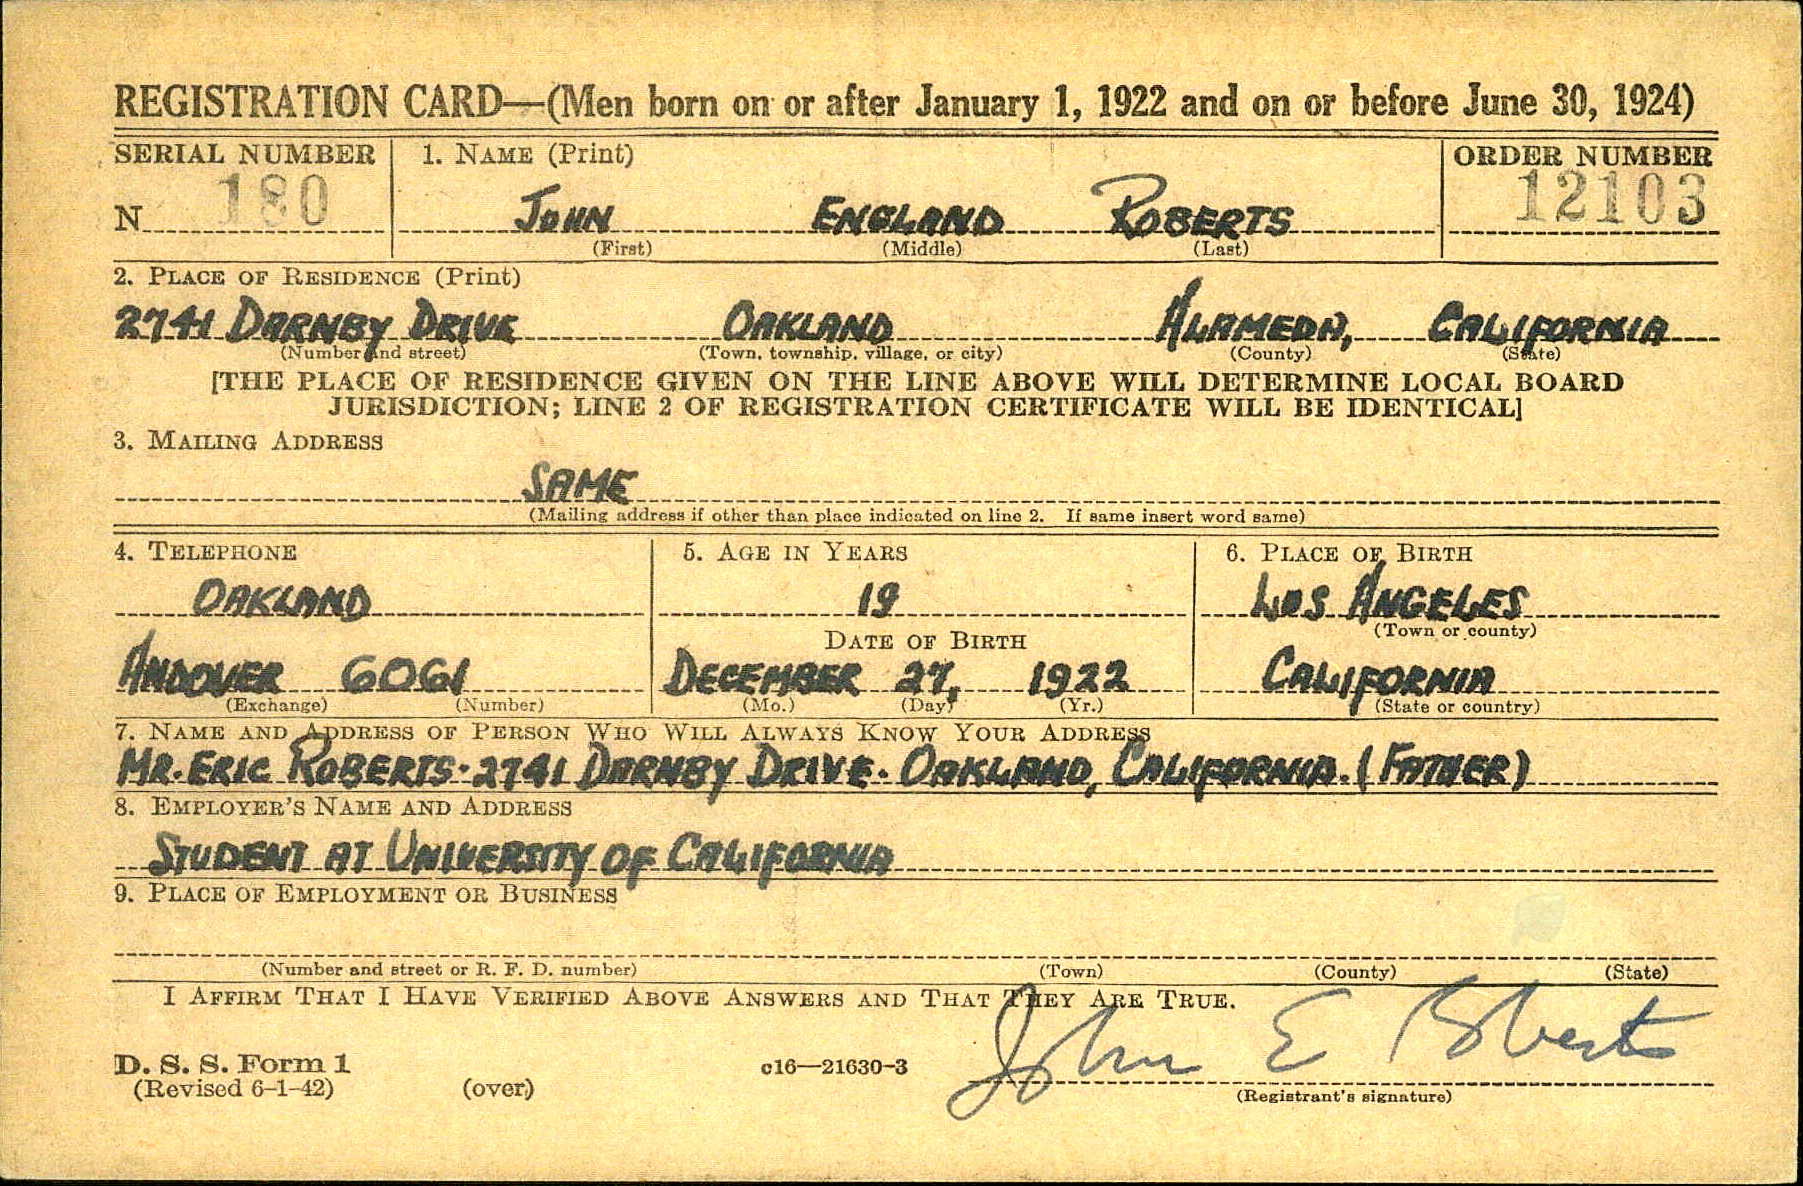 REGISTRATION CARD—(Men born on or after January 1, 1922 and on or before June 30, 1924)
SERIAL NUMBER 1. NAME (Print) ORDER NUMBER
N 180 JOHN ENGLAND ROBERTS 12103
(First) (Middle) (Last)
2. PLACE OF RESIDENCE (Print)
2741 DARNBY DRIVE OAKLAND ALAMEDA, CALIFORNIA
(Number and street) (Town, township, village, or city) (County) (State)
[THE PLACE OF RESIDENCE GIVEN ON THE LINE ABOVE WILL DETERMINE LOCAL BOARD
JURISDICTION; LINE 2 OF REGISTRATION CERTIFICATE WILL BE IDENTICAL]
3. MAILING ADDRESS
SAME
(Mailing address if other than place indicated on line 2. If same insert word same)
4. TELEPHONE 5. AGE IN YEARS 6. PLACE OF BIRTH
OAKLAND 19 LOS ANGELES
(Town or county)
DATE OF BIRTH
ANDOVER 6061 DECEMBER 27, 1922 CALIFORNIA
(Exchange) (Number) (Mo.) (Day) (Yr.) (State or country)
7. NAME AND ADDRESS OF PERSON WHO WILL ALWAYS KNOW YOUR ADDRESS
MR. ERIC ROBERTS. 2741 DARNBY DRIVE. OAKLAND, CALIFORNIA. (FATHER)
8. EMPLOYER'S NAME AND ADDRESS
STUDENT AT UNIVERSITY OF CALIFORNIA
9. PLACE OF EMPLOYMENT OR BUSINESS
(Number and street or R. F. D. number) (Town) (County) (State)
I AFFIRM THAT I HAVE VERIFIED ABOVE ANSWERS AND THAT THEY ARE TRUE.
John E Roberts
D. S. S. Form 1 c16—21630-3
(Revised 6-1-42) (over) (Registrant's signature)